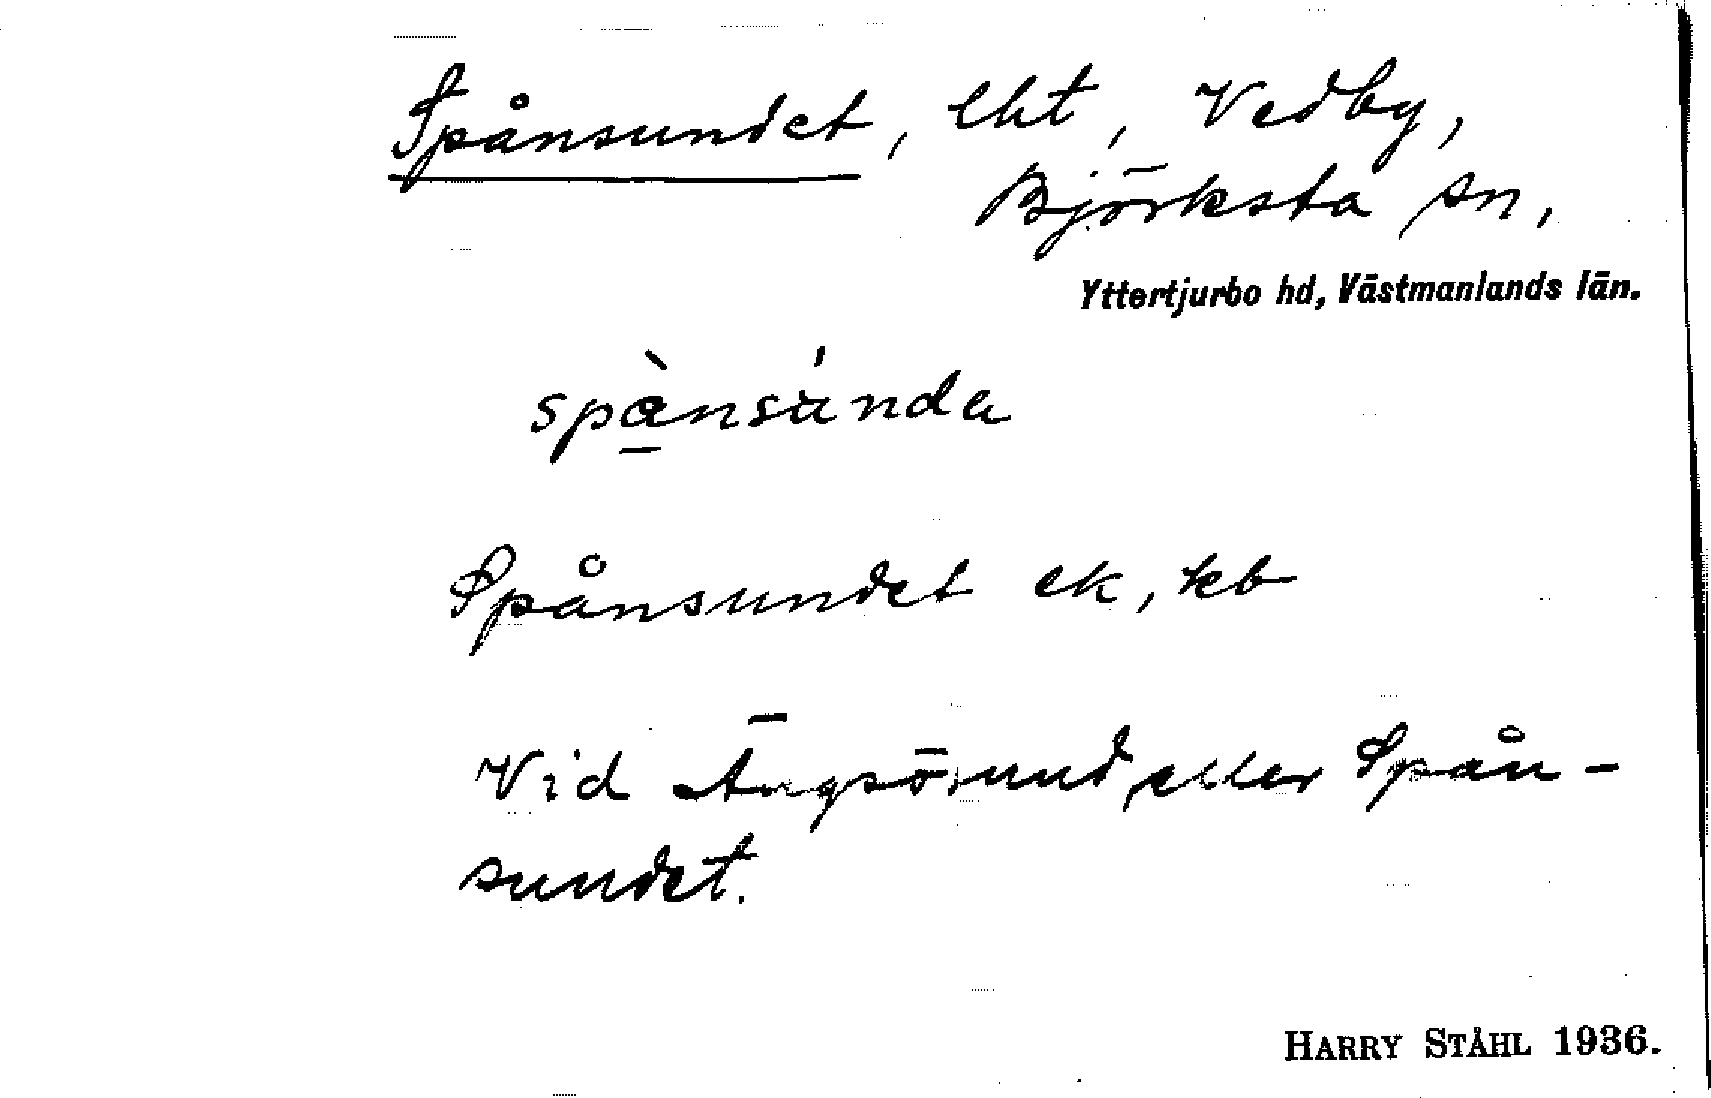 Spånsundet, lht, Vedby,
Björksta sn,
Yttertjurbo hd, Västmanlands län.
spȧ̠̀nsúnda
Spånsundet ek, kb
Vid Ängsösund, eller Spån-
sundet.
HARRY STÅHL 1936.